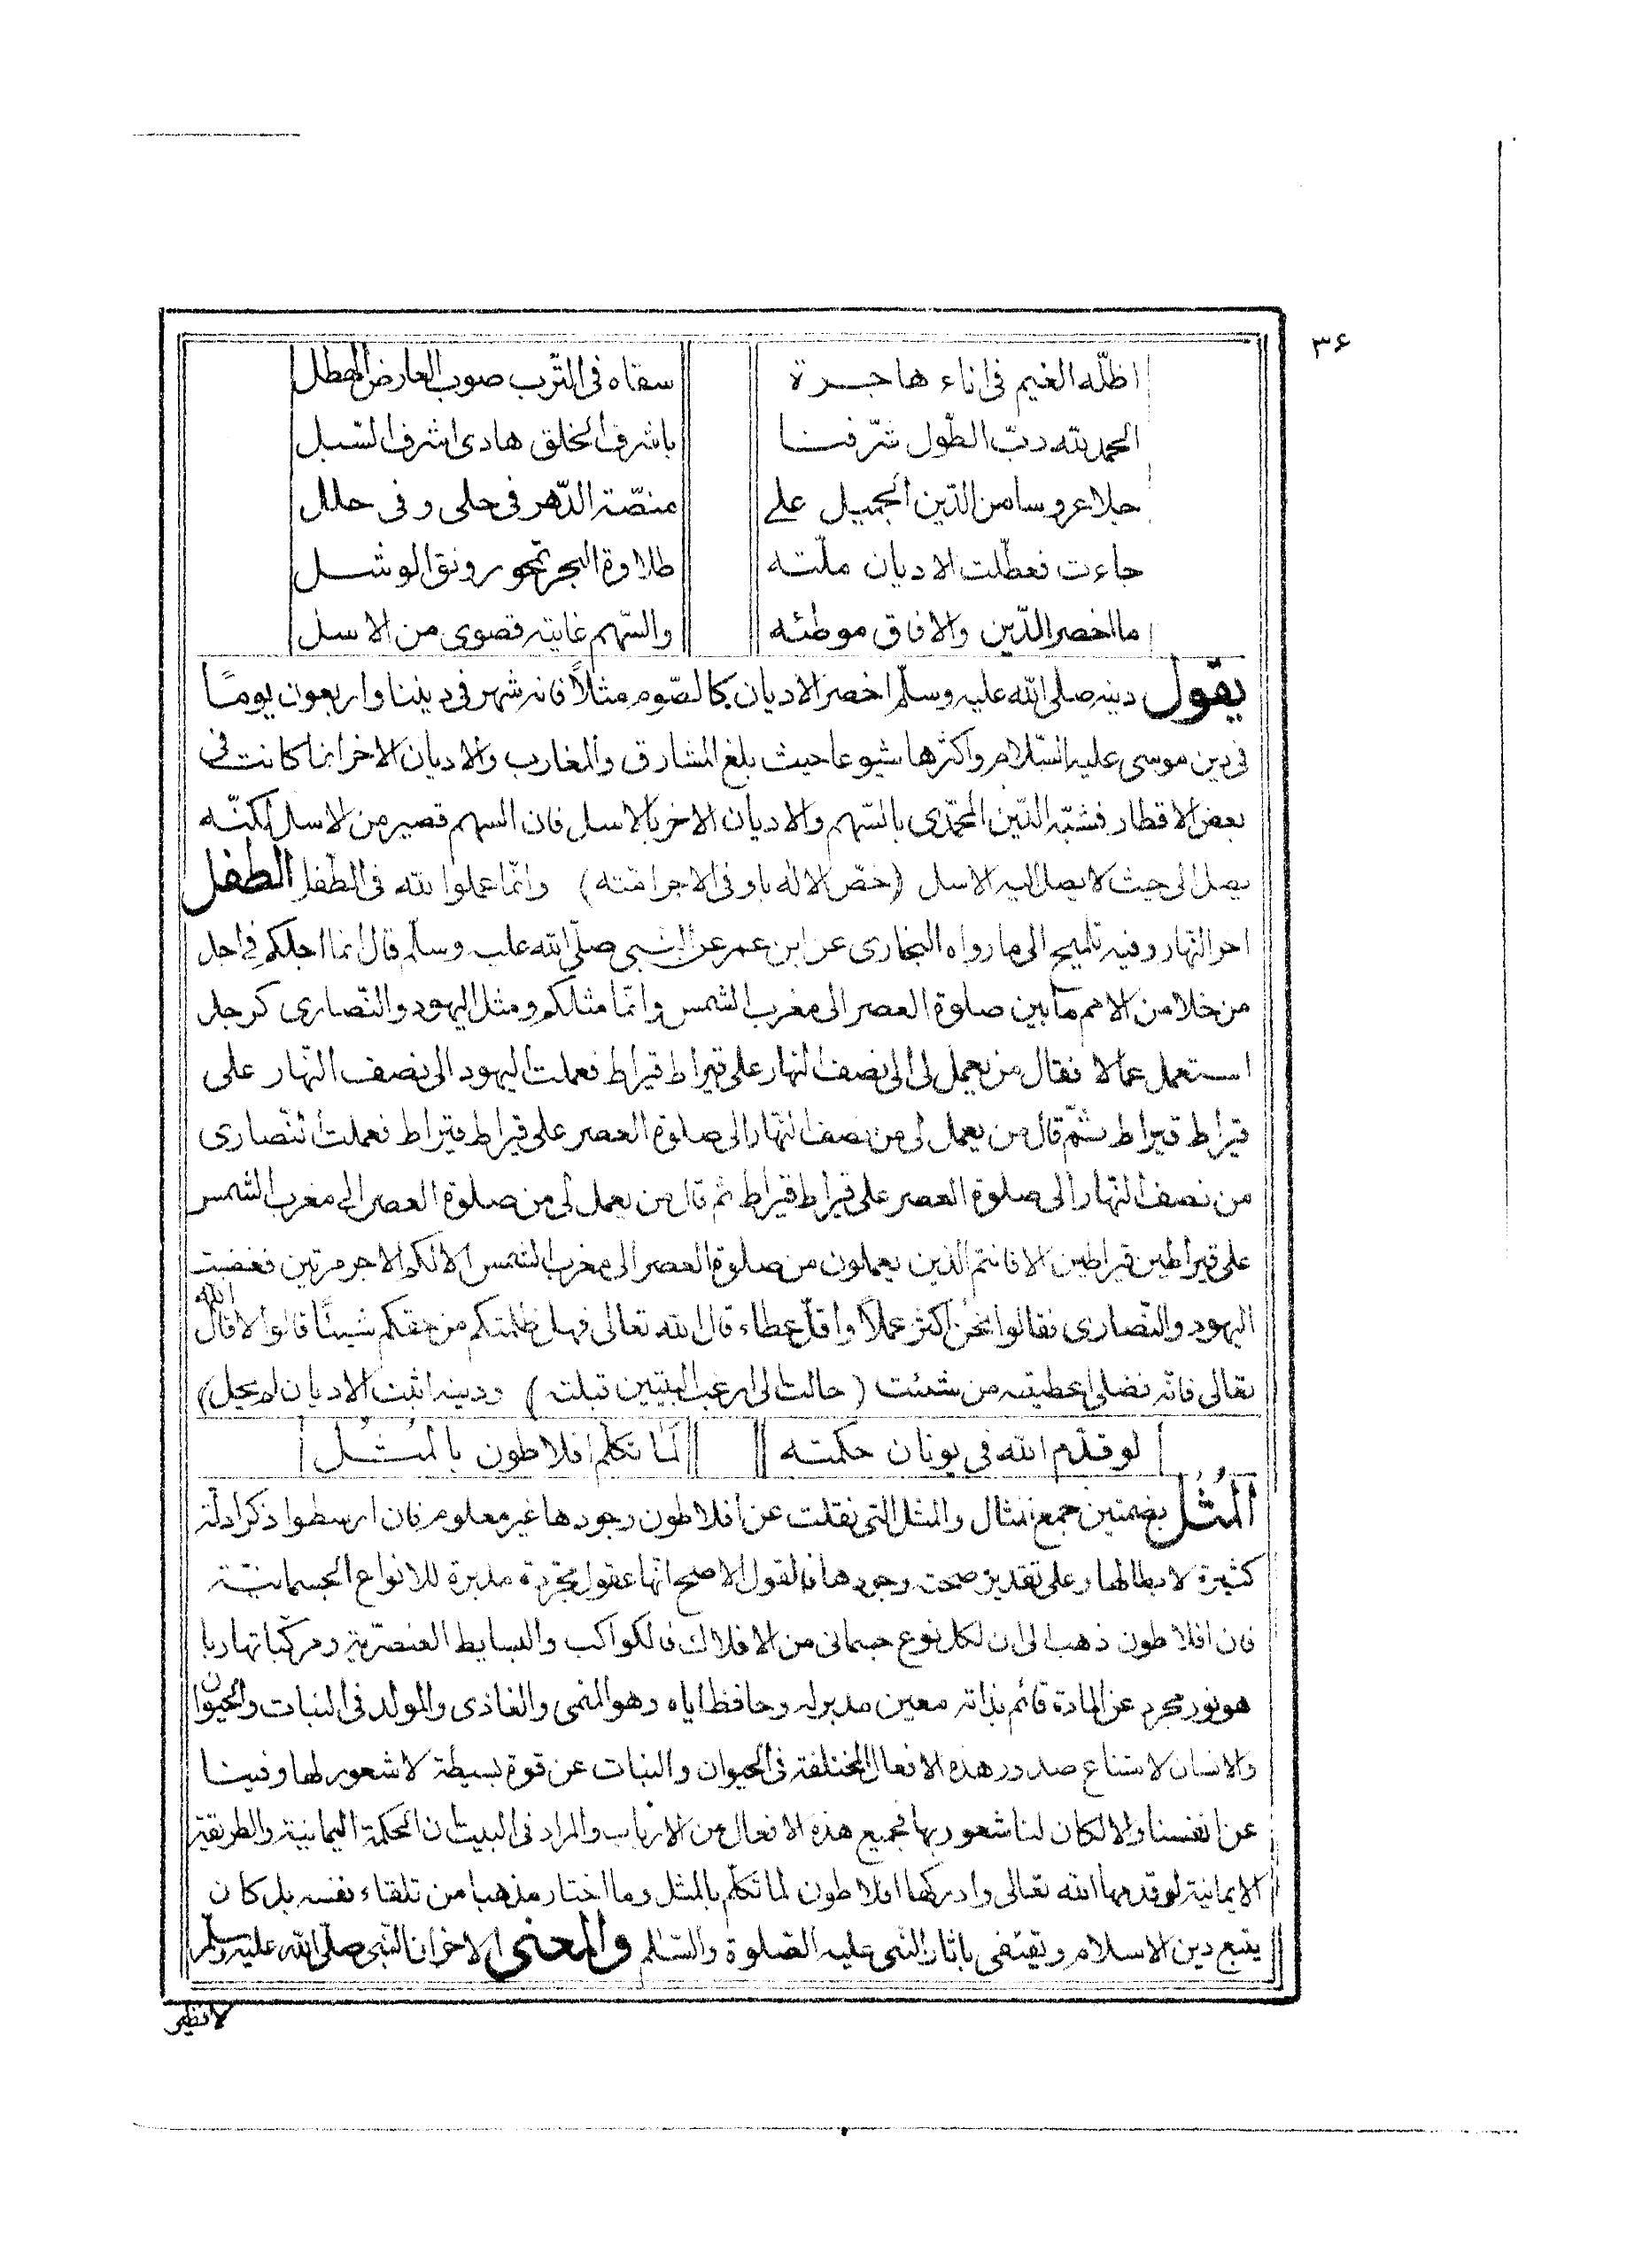 ٣۶
اظلّه الغيم فى اناء هاجرة سقاه فى التّرب صوب العارض الهطل
الحمد لله ربّ الطّول شرّفنا باشرف الخلق هادى اشرف السّبل
جلا عروسا من الدّين الجميل على منصّة الدّهر فى حلى وفى حلل
جاءت فعطّلت الاديان ملّته طلاوة البحر تمحو رونق الوشل
ما اخصر الدّين والافاق موطئه والسّهم غايته قصوى من الاسل
يقول دينه صلى الله عليه وسلّم اخصر الاديان كالصّوم مثلاً فانه شهر فى ديننا واربعون يومًا
فى دين موسى عليه السّلام واكثرها شيوعا حيث بلغ المشارق والمغارب والاديان الاخر انما كانت فى
بعض الاقطار فشبّه الدّين المحمّدى بالسّهم والاديان الاخر بالاسل فان السهم قصير من الاسل لكنّه
يصل الى حيث لا يصل اليه الاسل (خصّ الاله باوفى الاجر امّته) وانّما عملوا لله فى الطّفل الطفل
اخر النّهار وفيه تلميح الى ما رواه البخارى عن ابن عمر عن النّبى صلّى الله عليه وسلّم قال انما اجلكم فى اجل
من خلا من الامم ما بين صلوة العصر الى مغرب الشمس وانّما مثلكم ومثل اليهود والنّصارى كرجل
استعمل عمالا فقال من يعمل لى الى نصف النّهار على قيراط قيراط فعملت اليهود الى نصف النّهار على
قيراط قيراط ثمّ قال من يعمل لى من نصف النّهار الى صلوة العصر على قيراط قيراط فعملت النّصارى
من نصف النّهار الى صلوة العصر على قيراط قيراط ثم قال من يعمل لى من صلوة العصر الى مغرب الشمس
على قيراطين قيراطين الا فانتم الذين يعملون من صلوة العصر الى مغرب الشمس الا لكم الاجر مرتين فغضبت
اليهود والنّصارى فقالوا نحن اكثر عملاً واقلّ عطاء قال الله تعالى فهل ظلمتكم من حقكم شيئًا قالوا لا قال الله
تعالى فانّه فضلى اعطيته من شئت ( حالت الى قبلته ) ودينه اثبت الاديان لم يحل)
لو قدّم الله فى يونان حكمته لما تكلّم افلاطون بالمُثُل
المُثُل بضمتين جمع مثال والمثل التى نقلت عن افلاطون وجودها غير معلوم فان ارسطوا ذكر ادلّة
كثيرة لابطالها وعلى تقدير صحت وجودها فالقول الاصح انها عقول مجرّدة مدبرة للانواع الجسمانيّة
فان افلاطون ذهب الى ان لكل نوع جسمانى من الافلاك والكواكب والبسايط العنصريّة ومركّباتها ربا
هو نور مجرد عن المادة قائم بذاته معين مدبر له وحافظ اياه وهو المنمى والغاذى والمولد فى النبات والحيوان
والانسان لامتناع صدور هذه الافعال المختلفة فى الحيوان والنبات عن قوة بسيطة لا شعور لها وفينا
عن انفسنا والا لكان لنا شعور بها فجميع هذه الافعال من الارباب والمراد فى البيت ان الحكمة اليمانية والطريقة
الايمانية لو قدمها الله تعالى وادركها افلاطون لما تكلّم بالمثل وما اختار مذهبا من تلقاء نفسه بل كان
يتبع دين الاسلام ويقتفى باثار النّبى عليه الصّلوة والسّلم والمعنى الاخر ان النّبى صلّى الله عليه وسلّم
لا نظير